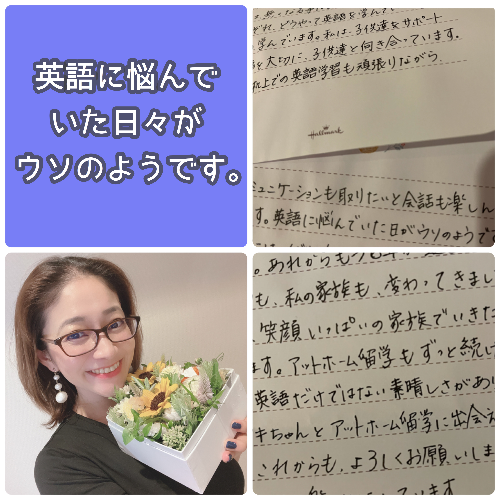 英語に悩んで
いた日々が
ウソのようです。
ぞれ、どうやって英語を学んで
学んでいます。私は、子供達をサポート
を大切に、子供達と向き合っています。
机上での英語学習も頑張りながら、
Hallmark
ミュニケーションも取りたいと会話も楽しん
す。英語に悩んでいた日がウソのようで
。あれからもう
も、私の家族も、変わってきまし
笑顔いっぱいの家族でいきた
ます。アットホーム留学もずっと続け
英語だけではない素晴しさがあり
キちゃんとアットホーム留学に出会え
これからも、よろしくお願いしま
しています